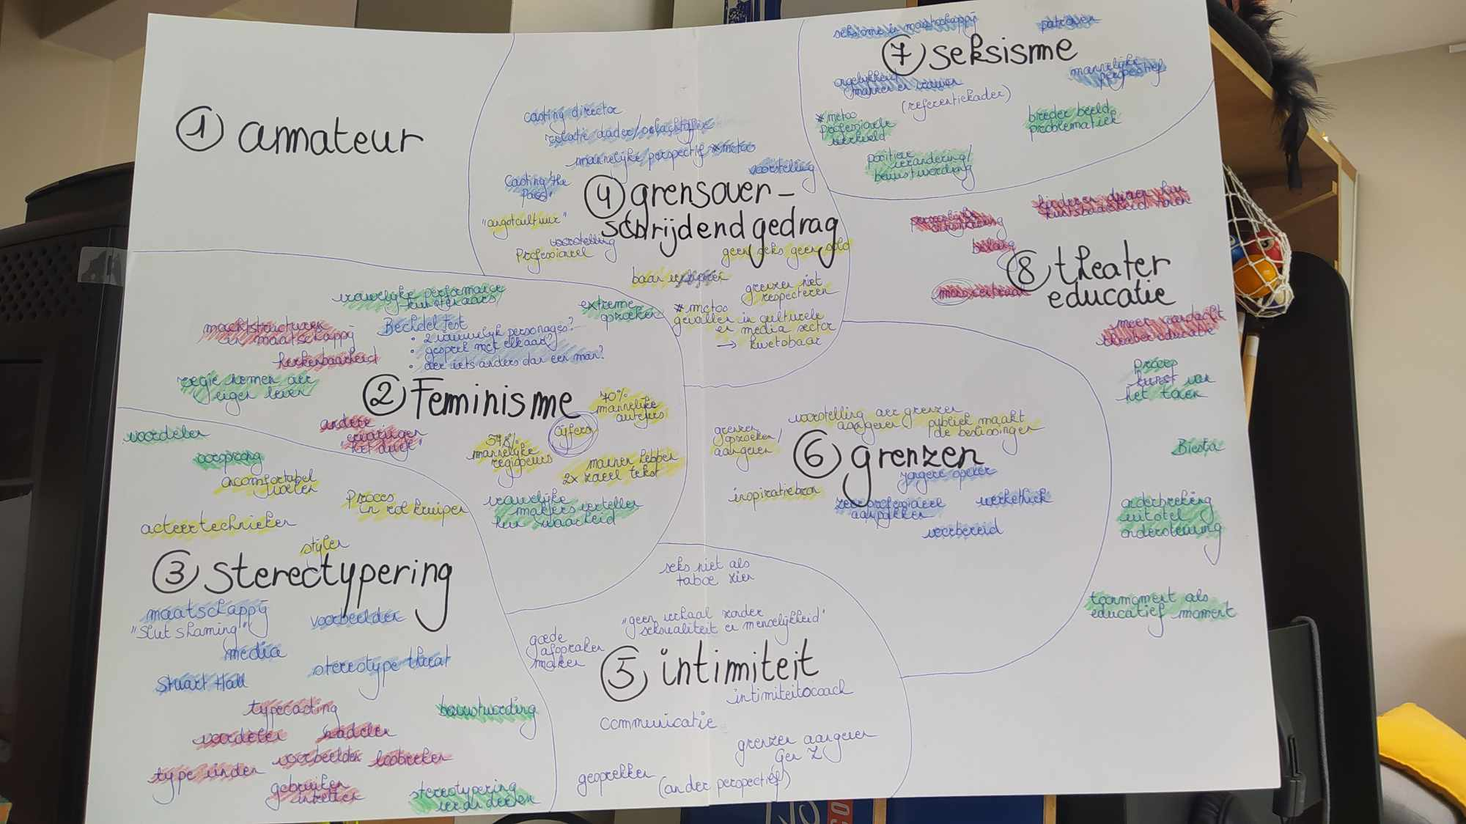 ① amateur
casting director
relatie dader/
mannelijk perspectief *metoo
voorstelling
Casting the
"angstcultuur"
voorstelling
Professioneel
④ grensover-
schrijdend gedrag
geen seks geen geld
baan
grenzen niet
respecteren
*metoo
gevallen in culturele
en media sector
→ kwetsbaar
seksisme in maatschappij
patronen
⑦ seksisme
ongelijkheid
mannen en vrouwen
(referentiekader)
mannelijke
perspectief
*metoo
professionele
breder beeld
problematiek
positieve
verandering/
bewustwording
belang
⑧ theater
educatie
meer aandacht
Proces
kunst van
het
Biesta
onderbreking
uitstel
ondersteuning
toonmoment als
educatief moment
vrouwelijke performance
kunstenaars
extreme
opzoeken
machtsstructuren
in maatschappij
herkenbaarheid
Bechdel test
• 2 vrouwelijk personages?
• gesprek met elkaar?
• over iets anders dan een man?
regie nemen over
eigen leven
② Feminisme
andere
ervaringen
70%
mannelijke
auteurs
cijfers
57,8%
mannelijke
regisseurs
mannen hebben
2x zoveel tekst
vrouwelijke
makers vertellen
hun waarheid
voordelen
oorsprong
oncomfortabel
voelen
Proces
in rol kruipen
acteertechnieken
stijlen
③ stereotypering
maatschappij
"Slut shaming"
voorbeelden
media
stereotype threat
Stuart Hall
typecasting
voordelen
nadelen
bewustwording
type
voorbeelden
doorbreken
gebruiken
inzetten
stereotypering
veranderen
voorstelling over grenzen
aangeven
publiek maakt
de beslissingen
grenzen
opzoeken/
aangeven
⑥ grenzen
jongere spelers
inspiratiebron
aanpakken
werkethiek
voorbereid
seks niet als
taboe zien
"geen verhaal zonder
seksualiteit en menselijkheid"
goede
afspraken
maken
⑤ intimiteit
intimiteitscoach
communicatie
grenzen aangeven
Gen Z
gesprekken
(ander perspectief)